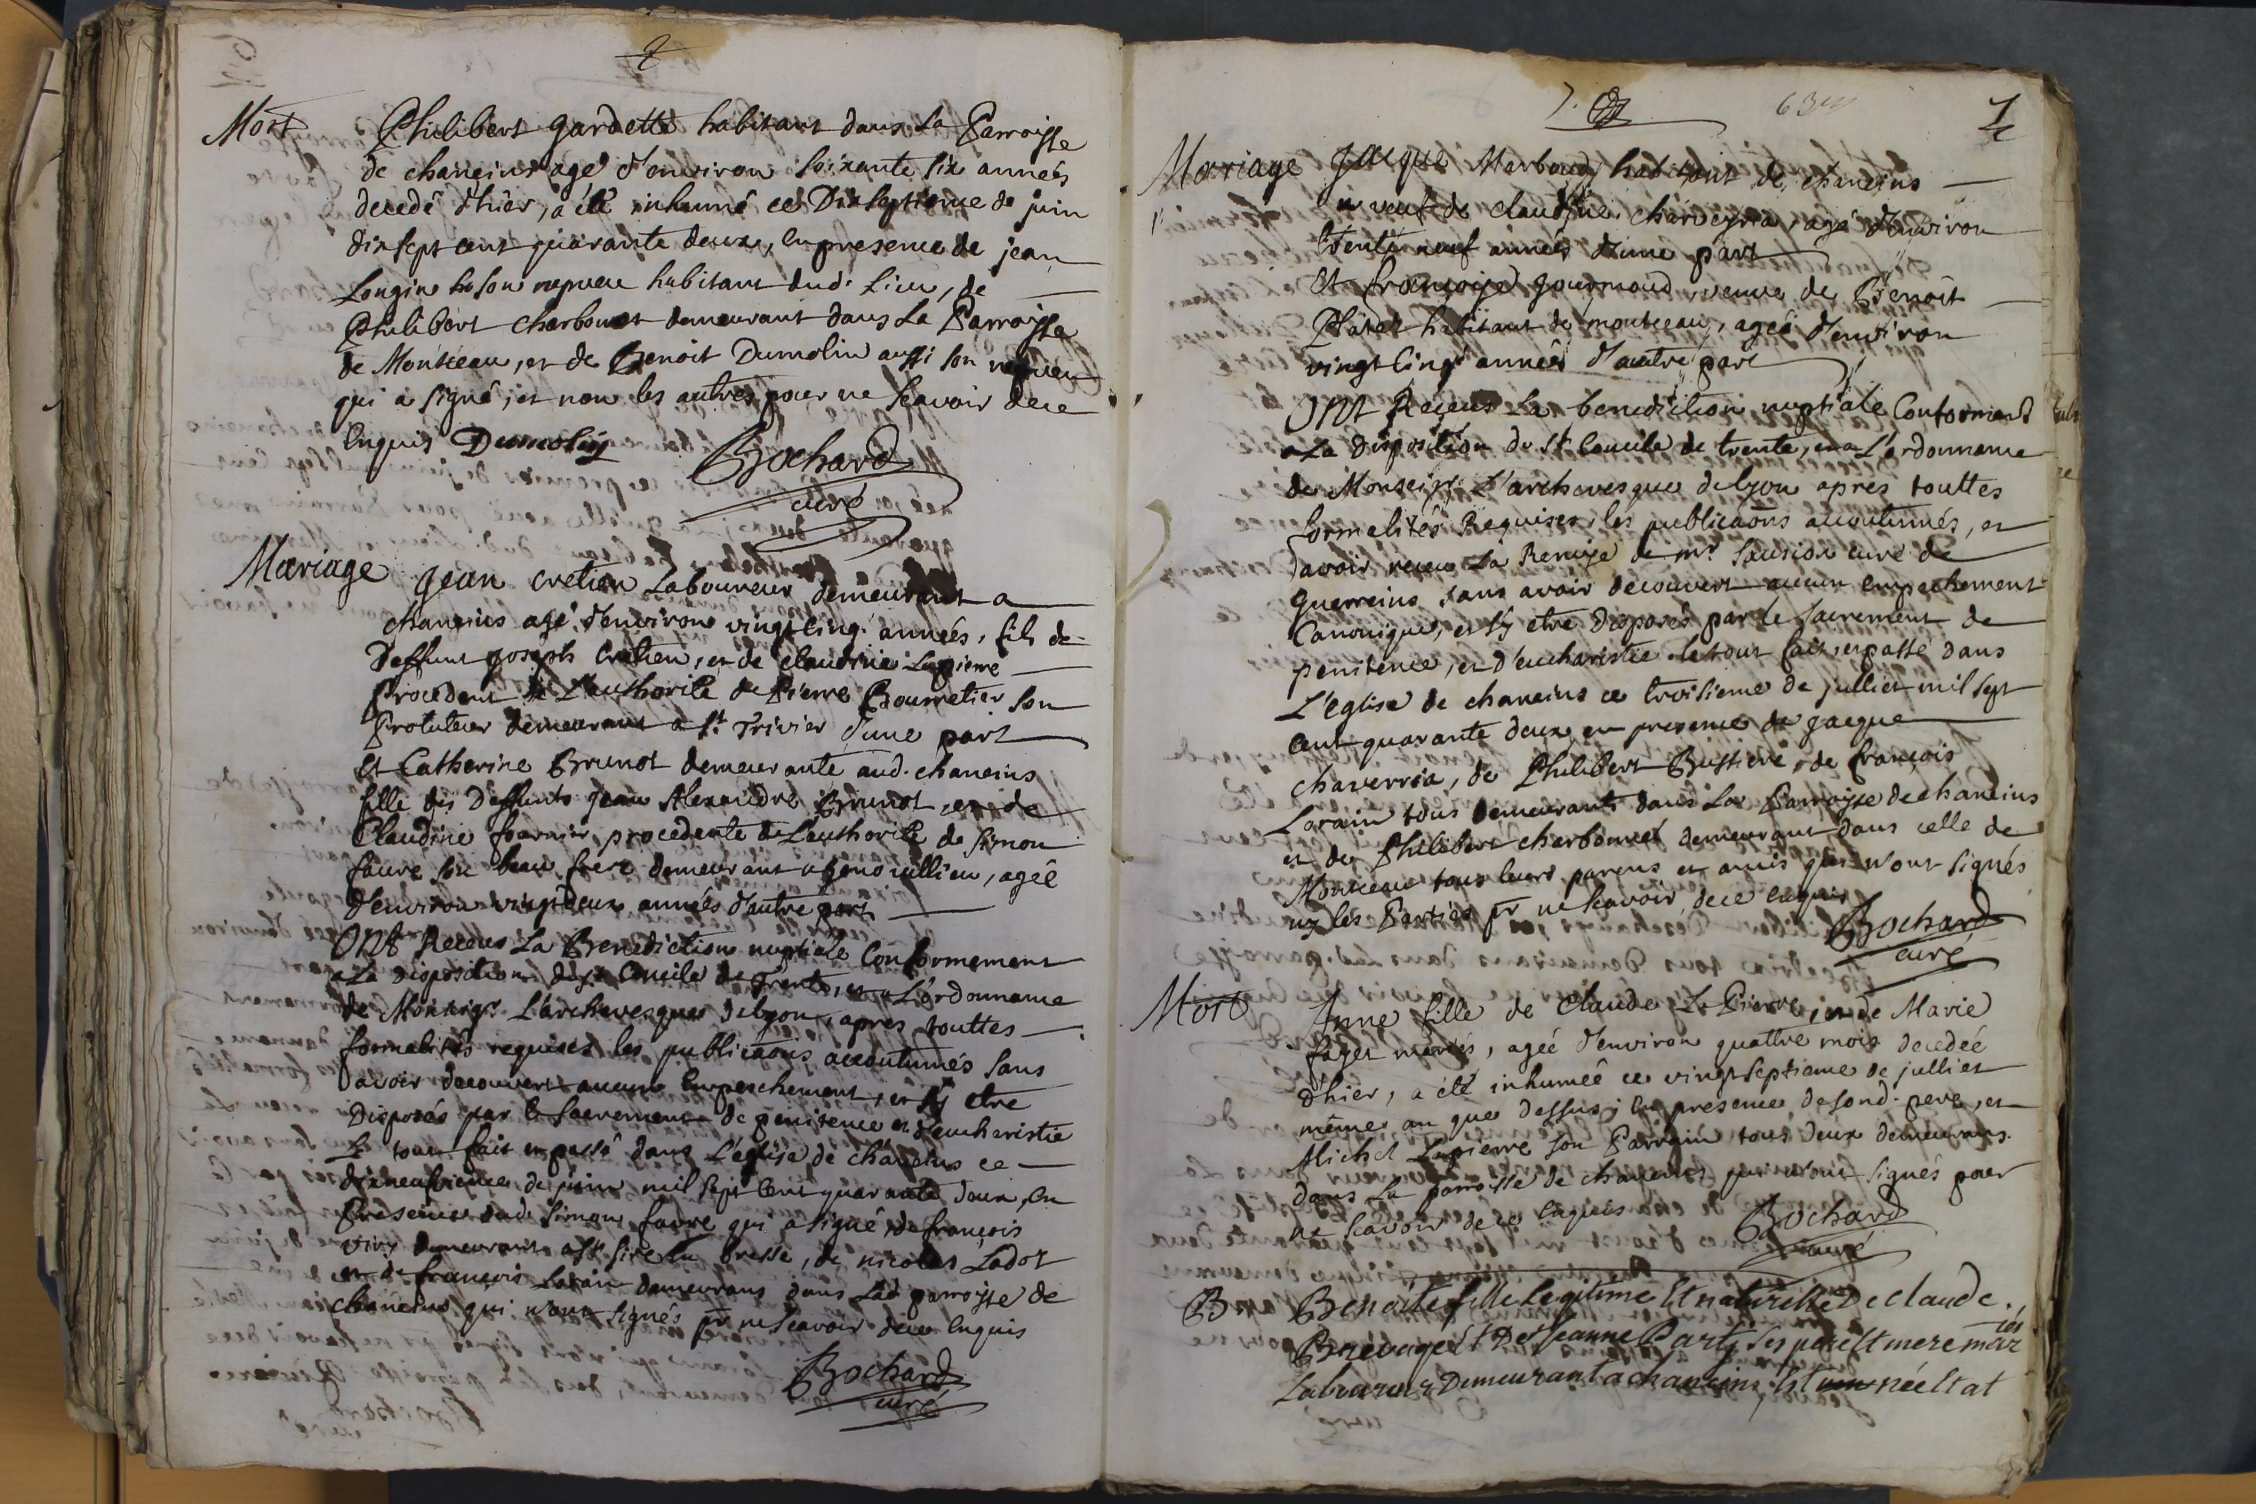 Mort Philibert gardette habitant dans La Parroisse
de chaneins agé d'environ soixante six années
decedé d'hier, a été inhumé ce Dixseptieme de juin
dixsept cent quarante deux, en presence de jean
Longin son nepveu habitant dud. Lieu, de
Philibert charbonet demeurant dans La Parroisse
de Montceau, et de Benoit Dumolin aussi son nepveu
qui a signé, et non les autres pour ne scavoir de ce
Enquis Dumolin
Bochard
curé
Mariage jean cretien Laboureur demeurant a
chaneins agé d'environ vingt cinq années, fils de
Deffunt joseph cretien, et de claudine Lapierre
Procedent de L'authorité de Pierre Bourretier son
Protuteur demeurant a St. Trivier d'une part
Et Catherine Brunot demeurante aud. chaneins
fille des Deffunts jean Alexandre Brunot, et de
Claudine fournier, procedente de L'authorité de simon
favre son beau frere demeurant a Genouillieu, ageé
d'environ vingt deux années d'autre part
ONT Receus La Benediction nuptiale Conformement
a La Disposition du st. Concile de Trente, et a L'ordonnance
de Monseigr. L'archevesque de Lyon, apres touttes
formalités requises les publicaons accoutumés sans
avoir decouvert aucun Empeschement, et s'y etre
Disposés par le sacrement de penitence et d'eucharistie
Le tout fait et passé dans L'eglise de chaneins ce
dixneufvieme de juin mil sept Cent quarante deux, en
Presence dud. simon favre qui a signé, de françois
viry demeurant a st sire en bresse, de nicolas Ladot
et de françois Lorain demeurans dans Lad. parroisse de
chaneins qui n'ont signés pr ne scavoir de ce Enquis
Bochard
curé
63
7
Mariage jacque Marboud habitant de chaneins
veuf de claudine charveyria, agé d'environ
trente neuf années d'une part
Et françoise gourmand, veuve de Benoit
Platet habitant de montceau, ageé d'environ
vingt Cinq années d'autre part
ONT Receus La benediction nuptiale Conformemt
a La Disposition du St. Concile de trente, et a L'ordonnance
de Monseigr. L'archevesque de Lyon apres touttes
formalités Requises, les publicaons accoutumés, et
d'avoir receu La Remise de mr. sausion curé de
guerreins sans avoir decouvert aucun empechement
Canonique, et s'y etre Disposés par le sacrement de
penitence, et d'eucharistie. le tout fait, et passé dans
L'eglise de chaneins ce troisieme de julliet mil sept
cent quarante deux en presence de jacque
charverria, de Philibert Bussiere, de françois
Lorain tous demeurants dans La Parroisse de chaneins
et de Philibert charbonnet demeurant dans celle de
Monceau tous leurs parens et amis qui n'ont signés
ny les Parties pr ne scavoir, de ce enquis
Bochard
curé
Mort Anne fille de Claude La Pierre, et de Marie
faget mariés, ageé d'environ quattre mois decedeé
d'hier, a été inhumeé ce vingt septieme de julliet
même an que dessus; en presence de sond. pere, et
Michel Lapierre son Parrain tous deux demeurans
dans La parroisse de chaneins qui n'ont signés pour
ne scavoir de ce enquis
Bochard
curé
B Benoite fille Legitime Et naturelle De claude
Et De Jeanne Party ses pere Et mere mariés
Laboureur Demeurant a chaneins Est née Et at